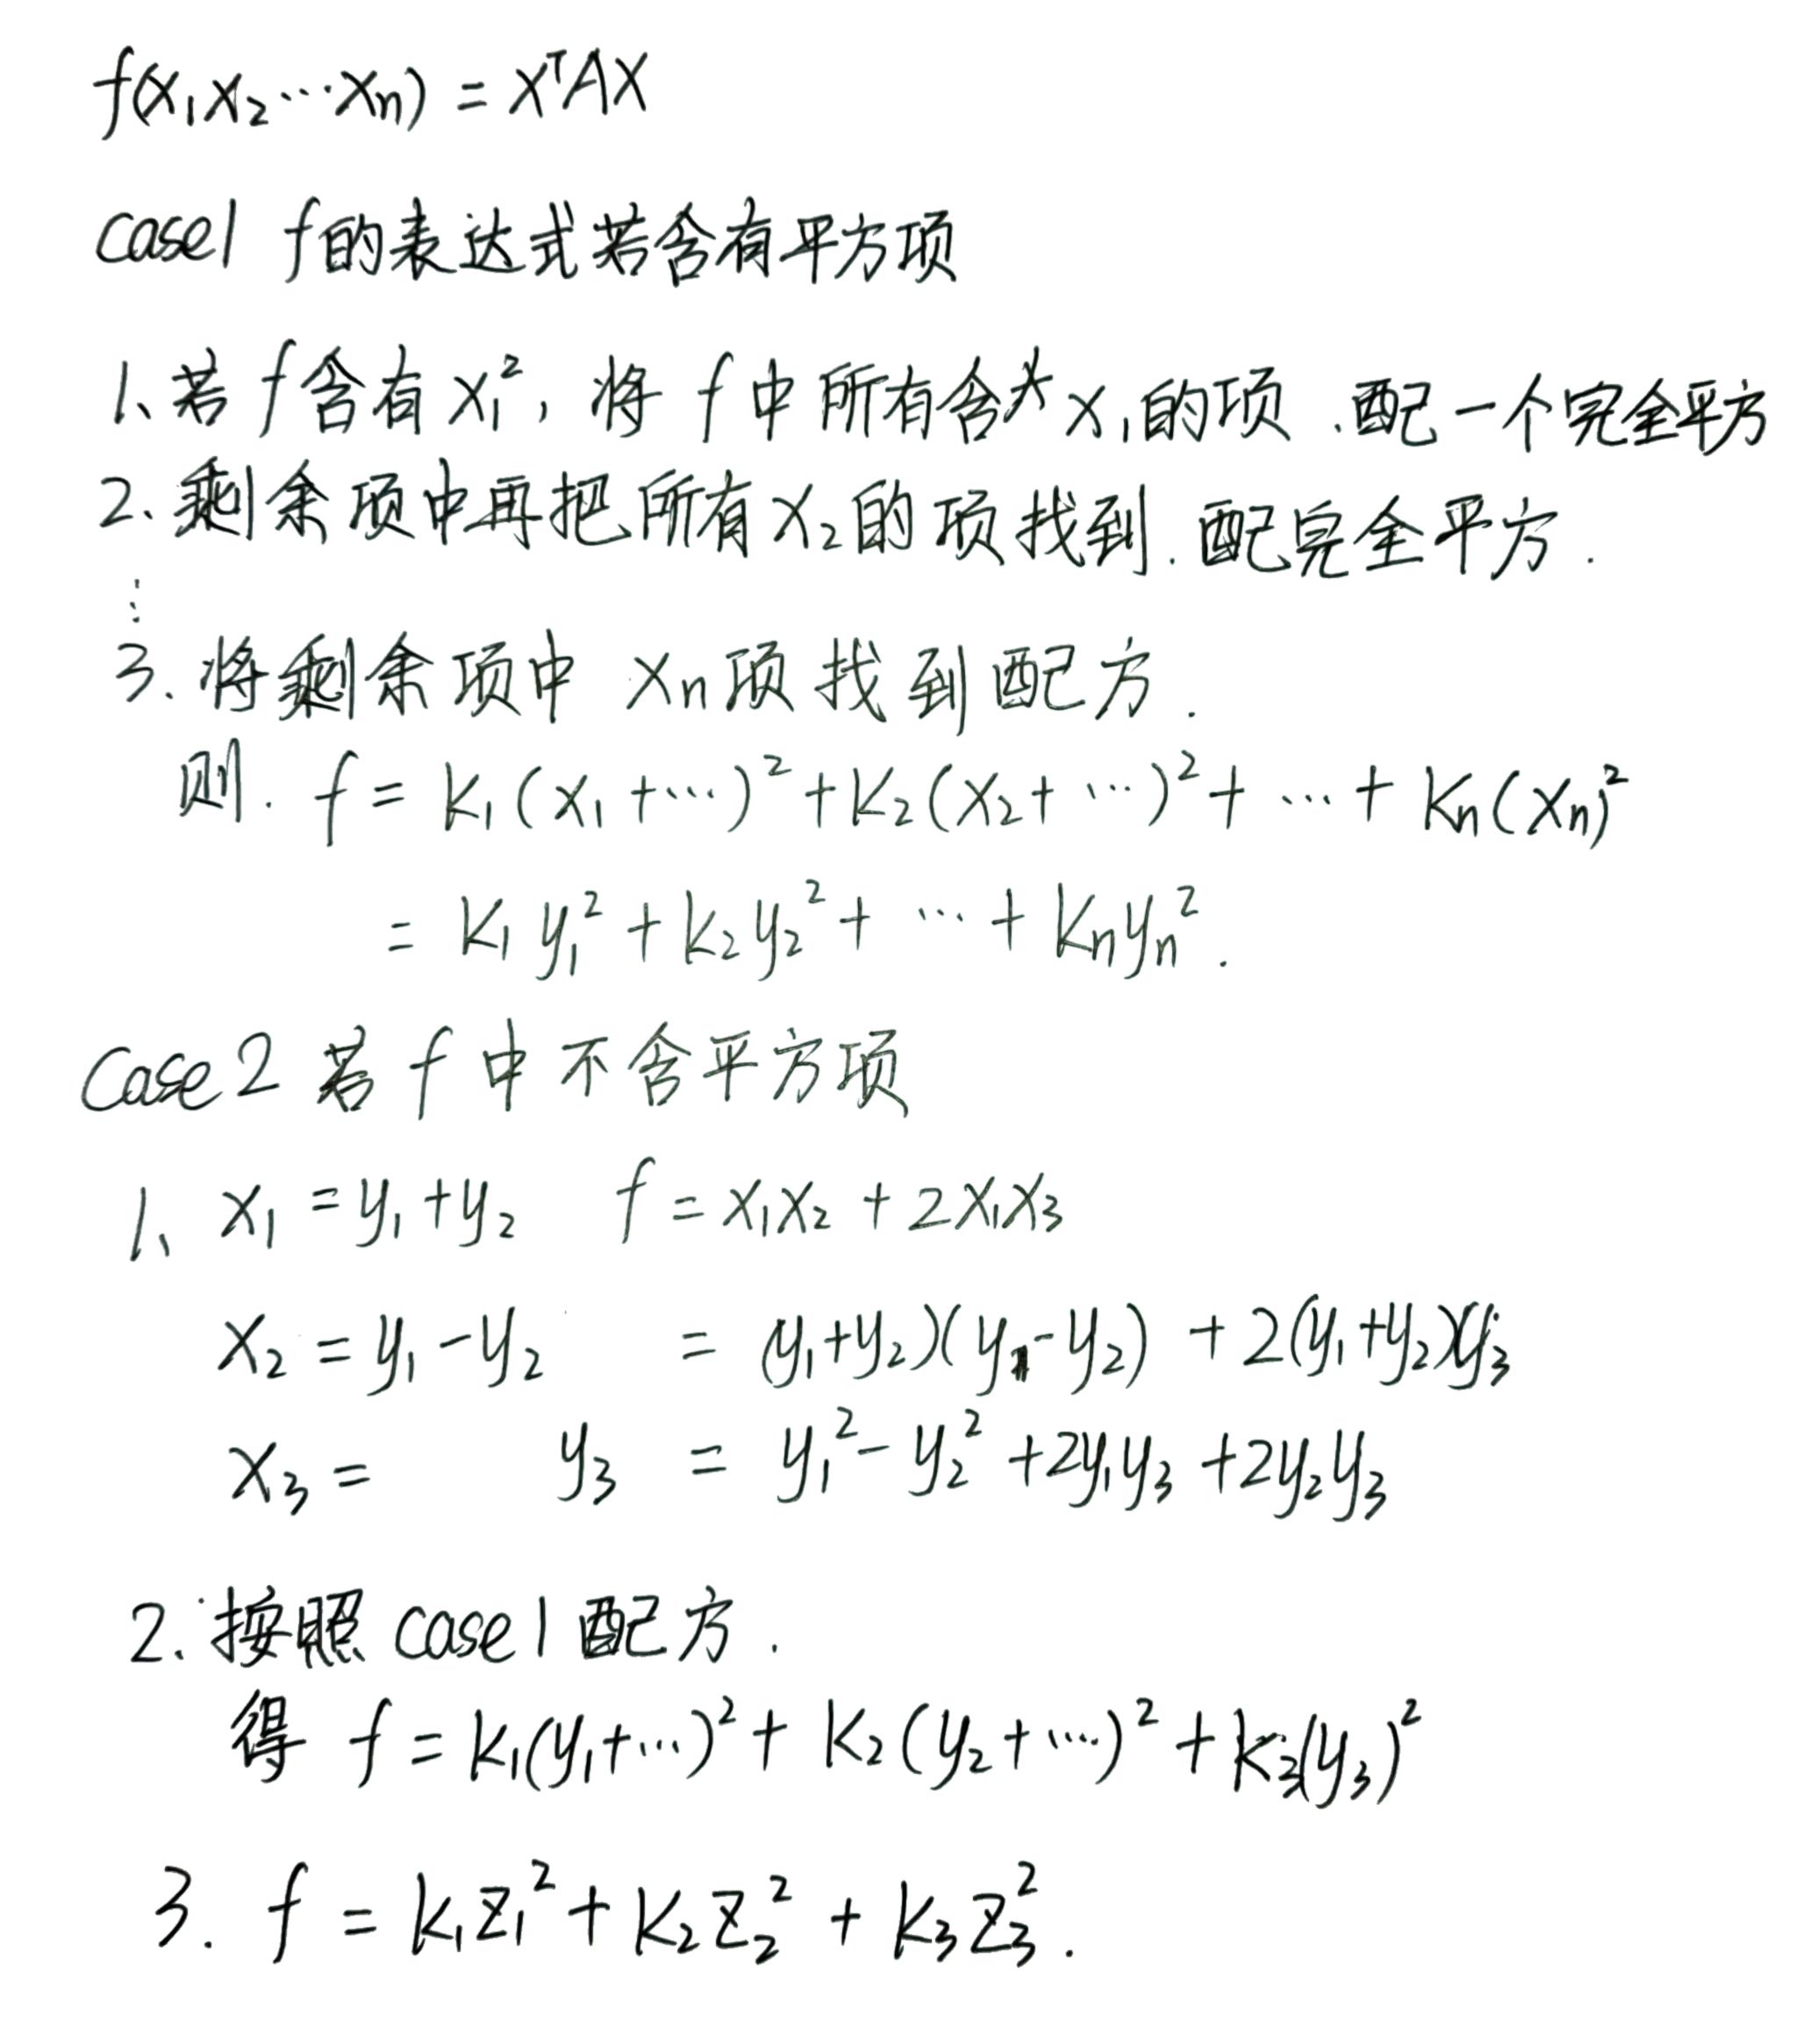 f(x₁x₂…xₙ) = xᵀAX
case1 f的表达式若含有平方项
1、若f含有x₁², 将f中所有含x₁的项.配一个完全平方
2、剩余项中再把所有x₂的项找到.配完全平方.
⋮
3.将剩余项中 xₙ项找到配方.
则. f = k₁(x₁+…)² + k₂(x₂+…)² + … + kₙ(xₙ)²
= k₁y₁² + k₂y₂² + … + kₙyₙ².
Case2 若f中不含平方项
1、x₁ = y₁+y₂ f = x₁x₂ + 2x₁x₃
x₂ = y₁-y₂ = (y₁+y₂)(y₁-y₂) + 2(y₁+y₂)y₃
x₃ = y₃ = y₁² - y₂² + 2y₁y₃ + 2y₂y₃
2.按照case1配方.
得 f = k₁(y₁+…)² + k₂(y₂+…)² + k₃(y₃)²
3. f = k₁z₁² + k₂z₂² + k₃z₃².